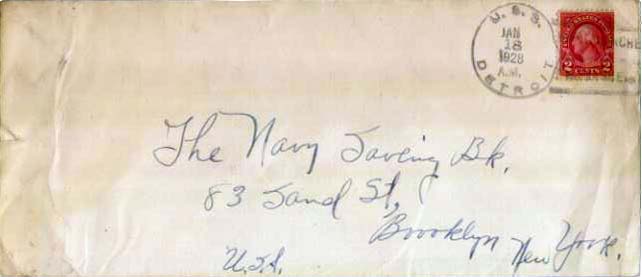 U. S. S. DETROIT
JAN
18
1928
A.M.
UNITED STATES POSTAGE
2 CENTS 2
The Navy Saving Bk.
83 Sand St,
Brooklyn New York.
U.S.A.